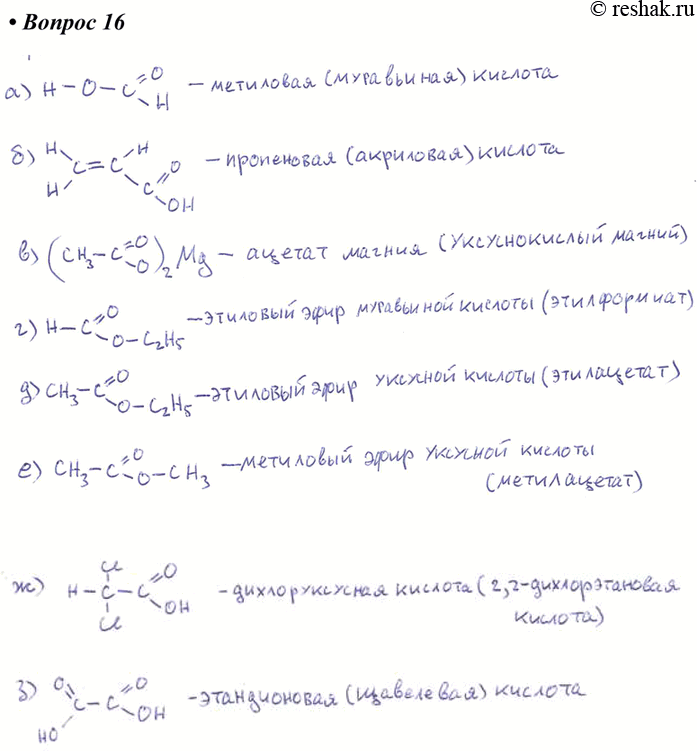 © reshak.ru
• Вопрос 16
а) H-O-C=O H - метиловая (муравьиная) кислота
б) H H C=C H C=O OH - пропеновая (акриловая) кислота
в) (CH3-C=O O)2 Mg - ацетат магния (уксуснокислый магний)
г) H-C=O O-C2H5 - этиловый эфир муравьиной кислоты (этилформиат)
д) CH3-C=O O-C2H5 - этиловый эфир уксусной кислоты (этилацетат)
е) CH3-C=O O-CH3 - метиловый эфир уксусной кислоты
(метилацетат)
ж) H-C-C=O OH Cl Cl - дихлоруксусная кислота (2,2-дихлорэтановая
кислота)
з) O=C-C=O HO OH - этандионовая (щавелевая) кислота